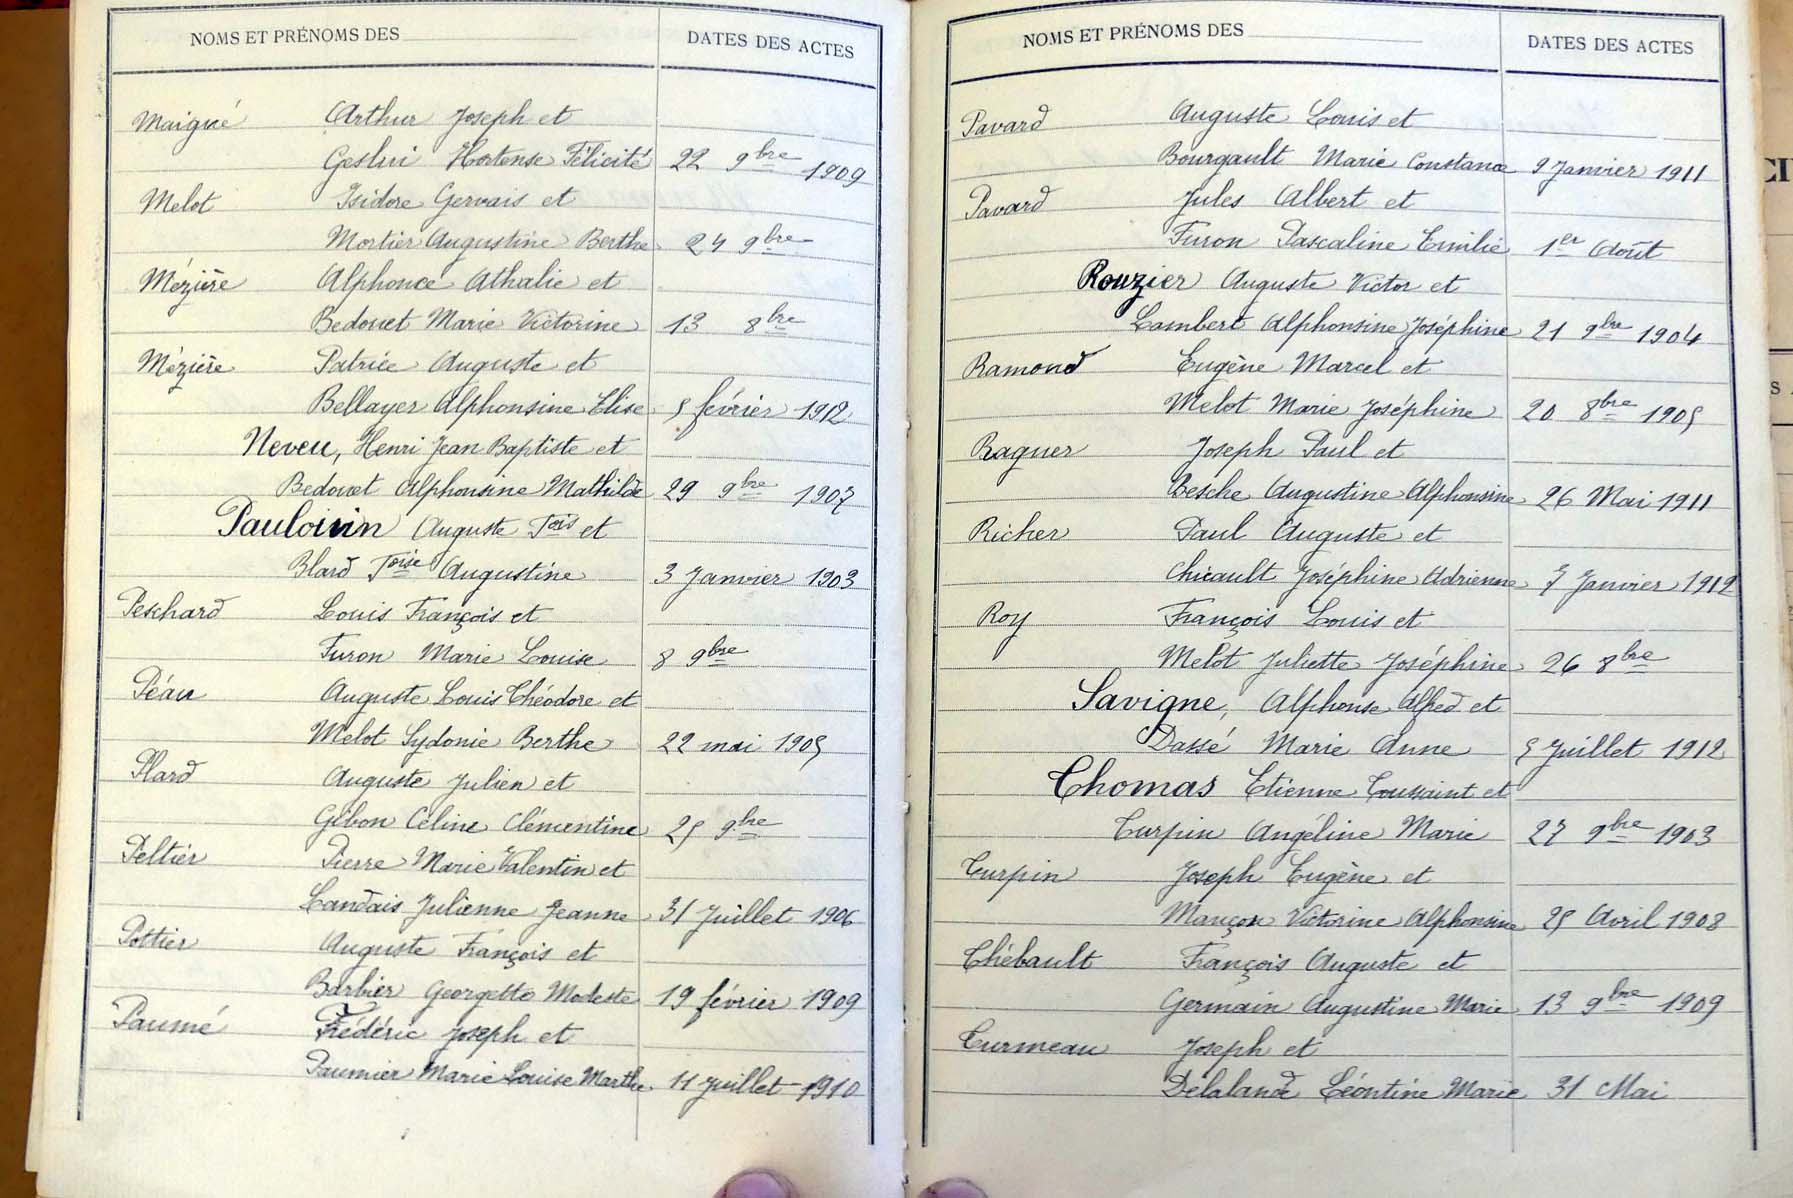 NOMS ET PRÉNOMS DES DATES DES ACTES
Maigné Arthur Joseph et
Geslin Hortense Félicité 22 9bre 1909
Melot Isidore Gervais et
Mortier Augustine Berthe 24 9bre
Mézière Alphonce Athalie et
Bedouet Marie Victorine 13 8bre
Mézière Patrice Auguste et
Bellayer Alphonsine Elise 5 février 1912
Neveu, Henri Jean Baptiste et
Bedouet Alphonsine Mathilde 29 9bre 1907
Pauloin Auguste Fois et
Blard Foise Augustine 3 Janvier 1903
Peschard Louis François et
Furon Marie Louise 8 9bre
Péan Auguste Louis Théodore et
Melot Sydonie Berthe 22 mai 1905
Plard Auguste Julien et
Gébon Céline Clémentine 25 9bre
Peltier Pierre Marie Valentin et
Landais Julienne Jeanne 31 Juillet 1906
Pottier Auguste François et
Barbier Georgette Modeste 19 février 1909
Paumé Frédéric Joseph et
Paumier Marie Louise Marthe 11 Juillet 1910
NOMS ET PRÉNOMS DES DATES DES ACTES
Pavard Auguste Louis et
Bourgault Marie Constance 9 Janvier 1911
Pavard Jules Albert et
Furon Pascaline Emilie 1er Août
Rouzier Auguste Victor et
Lambert Alphonsine Joséphine 21 9bre 1904
Ramond Eugène Marcel et
Melot Marie Joséphine 20 8bre 1905
Raguer Joseph Paul et
Besche Augustine Alphonsine 26 Mai 1911
Richer Paul Auguste et
Chicault Joséphine Adrienne 7 Janvier 1912
Roy François Louis et
Melot Juliette Joséphine 26 8bre
Savigne, Alphonse Alfred et
Dassé Marie Anne 5 Juillet 1912
Thomas Etienne Toussaint et
Turpin Angéline Marie 27 9bre 1903
Turpin Joseph Eugène et
Mançon Victorine Alphonsine 25 Avril 1908
Thébault François Auguste et
Germain Augustine Marie 13 9bre 1909
Turmeau Joseph et
Delalande Léontine Marie 31 Mai